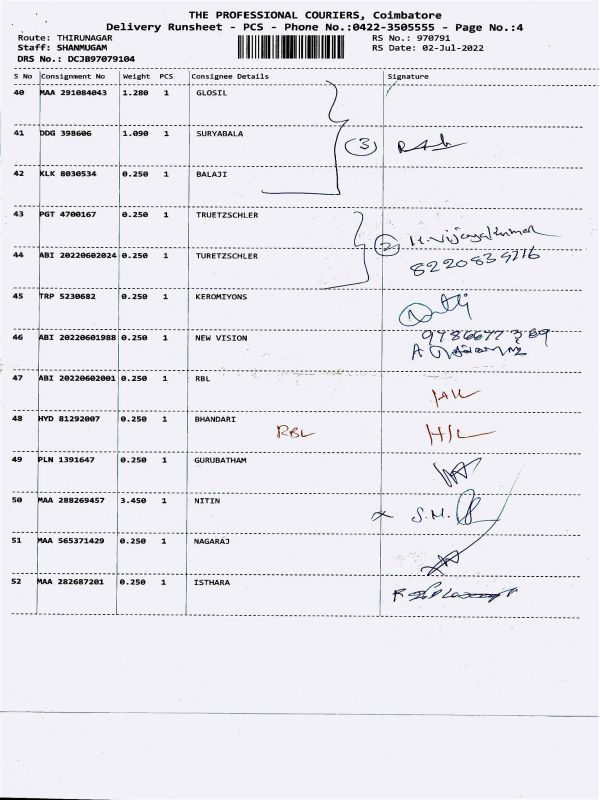 THE PROFESSIONAL COURIERS, Coimbatore
Delivery Runsheet - PCS - Phone No.:0422-3505555 - Page No.:4
Route: THIRUNAGAR RS No.: 970791
Staff: SHANMUGAM RS Date: 02-Jul-2022
DRS No.: DCJB97079104
S No Consignment No Weight PCS Consignee Details Signature
40 MAA 291084043 1.280 1 GLOSIL
41 DDG 398606 1.090 1 SURYABALA 3
42 KLK 8030534 0.250 1 BALAJI
43 PGT 4700167 0.250 1 TRUETZSCHLER
2 K.Vijayakumar
44 ABI 20220602024 0.250 1 TURETZSCHLER
45 TRP 5230682 0.250 1 KEROMIYONS
46 ABI 20220601988 0.250 1 NEW VISION
47 ABI 20220602001 0.250 1 RBL
48 HYD 81292007 0.250 1 BHANDARI RBL
49 PLN 1391647 0.250 1 GURUBATHAM
50 MAA 288269457 3.450 1 NITIN S.M.
51 MAA 565371429 0.250 1 NAGARAJ
52 MAA 282687201 0.250 1 ISTHARA